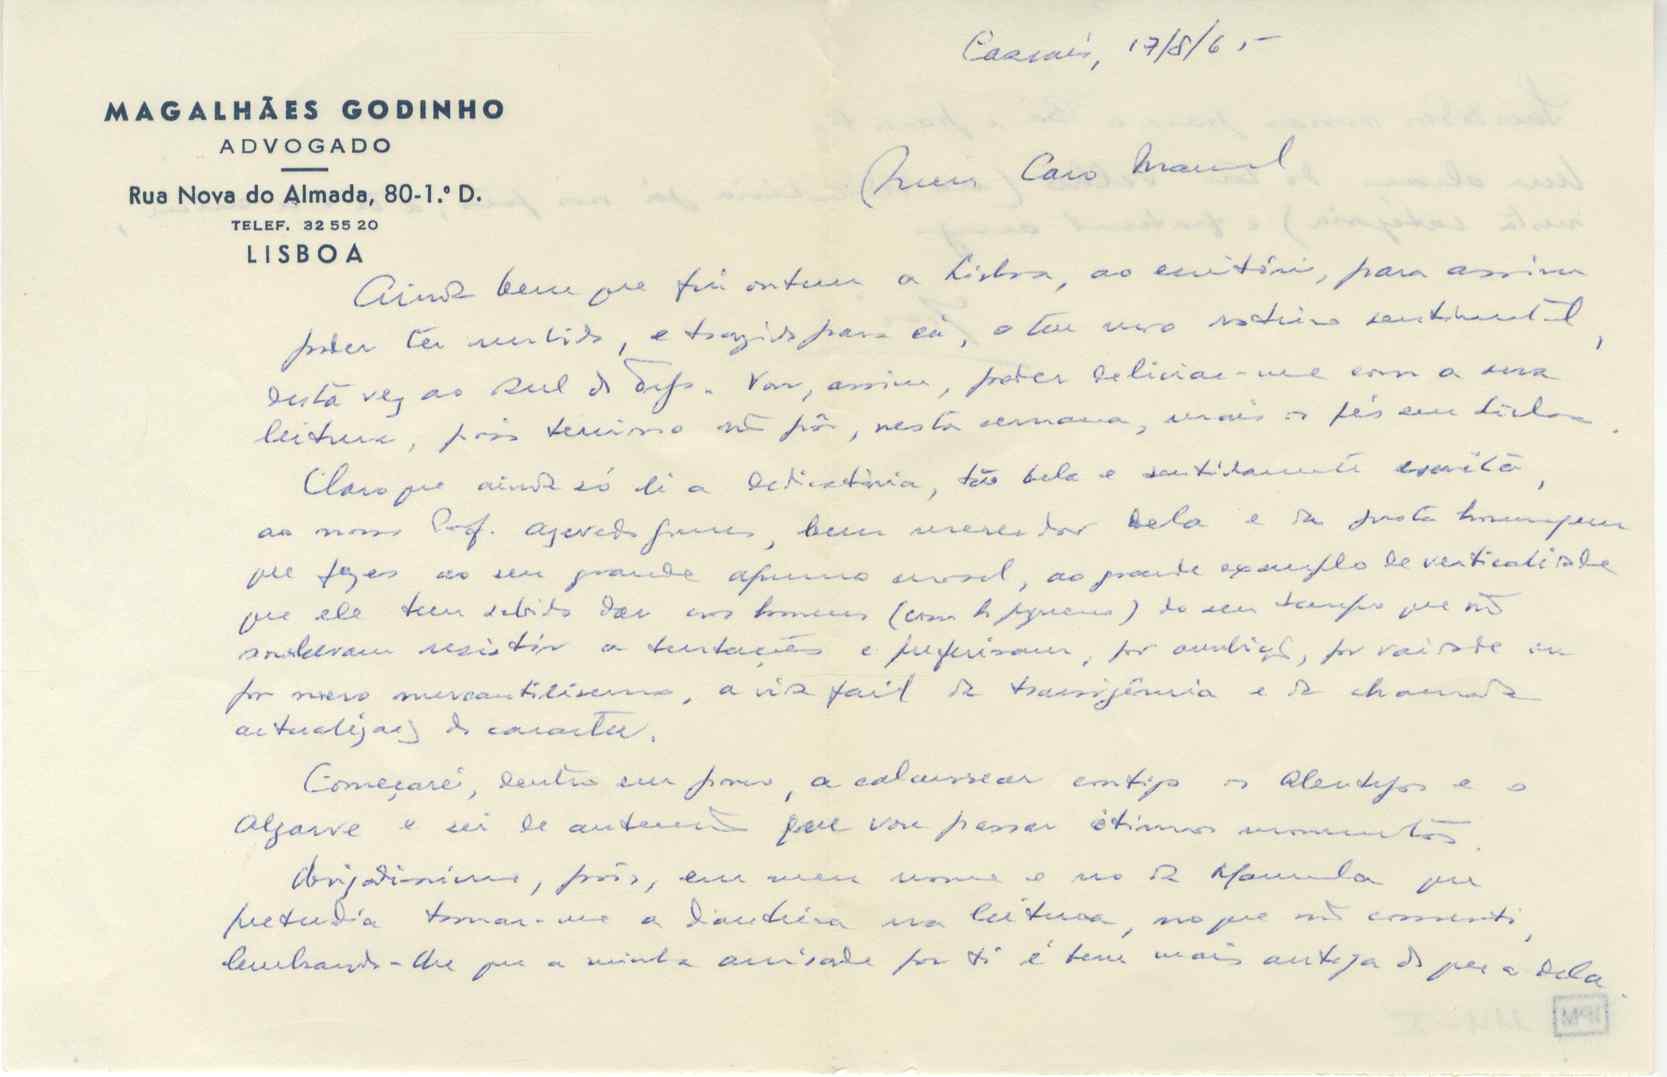 Cascais, 17/8/65
MAGALHÃES GODINHO
ADVOGADO
Rua Nova do Almada, 80-1.º D.
TELEF. 32 55 20
LISBOA
Meu Caro Manuel
Ainda bem que fui ontem a Lisboa, ao escritório, para assim
poder ter recebido, e trazido para cá, o teu novo roteiro sentimental,
desta vez ao sul do Tejo. Vou, assim, poder deliciar-me com a sua
leitura, pois tenciono não pôr, nesta semana, mais os pés em Lisboa.
Claro que ainda só li a dedicatória, tão bela e sentidamente escrita,
ao nosso Prof. Azevedo Gomes, bem merecedor dela e da justa homenagem
que fazes ao seu grande aprumo moral, ao grande exemplo de verticalidade
que ele tem sabido dar aos homens (com h pequeno) do seu tempo que não
souberam resistir a tentações e preferiram, por ambição, por vaidade ou
por mero mercantilismo, a via fácil da transigência e da chamada
actualização do caracter.
Começarei, dentro em pouco, a calcurrear contigo os Alentejos e o
Algarve e sei de antemão que vou passar ótimos momentos.
Obrigadíssimo, pois, em meu nome e no da Manuela que
pretendia tomar-me a dianteira na leitura, no que não consenti,
lembrando-lhe que a minha amizade por ti é bem mais antiga do que a dela.
IPM